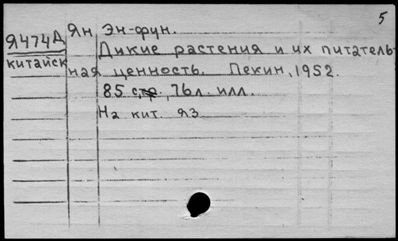 5
Я474Д Ян, Эн-фун.
Дикие растения и их питатель-
китайск ная ценность. Пекин, 1952.
85 стр., 76 л. илл.
На кит. яз.